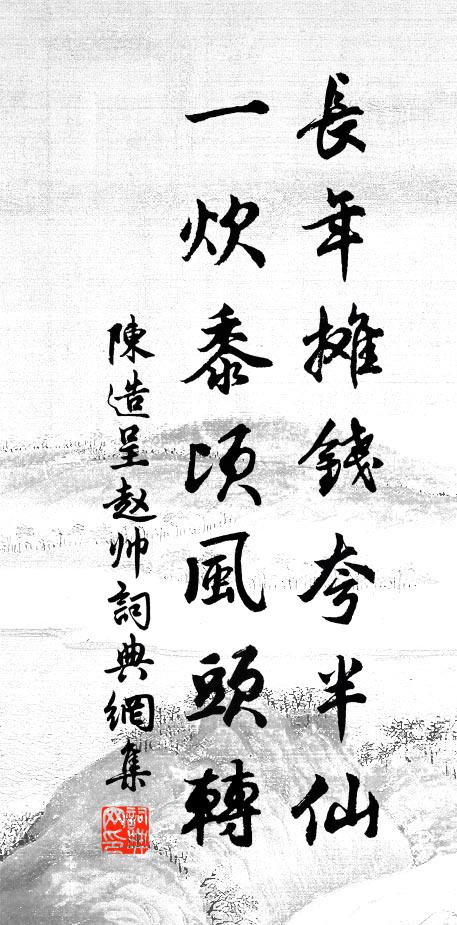 長年攤錢夸半仙
一炊黍頃風頭轉
陳造呈赵帅詞典網集